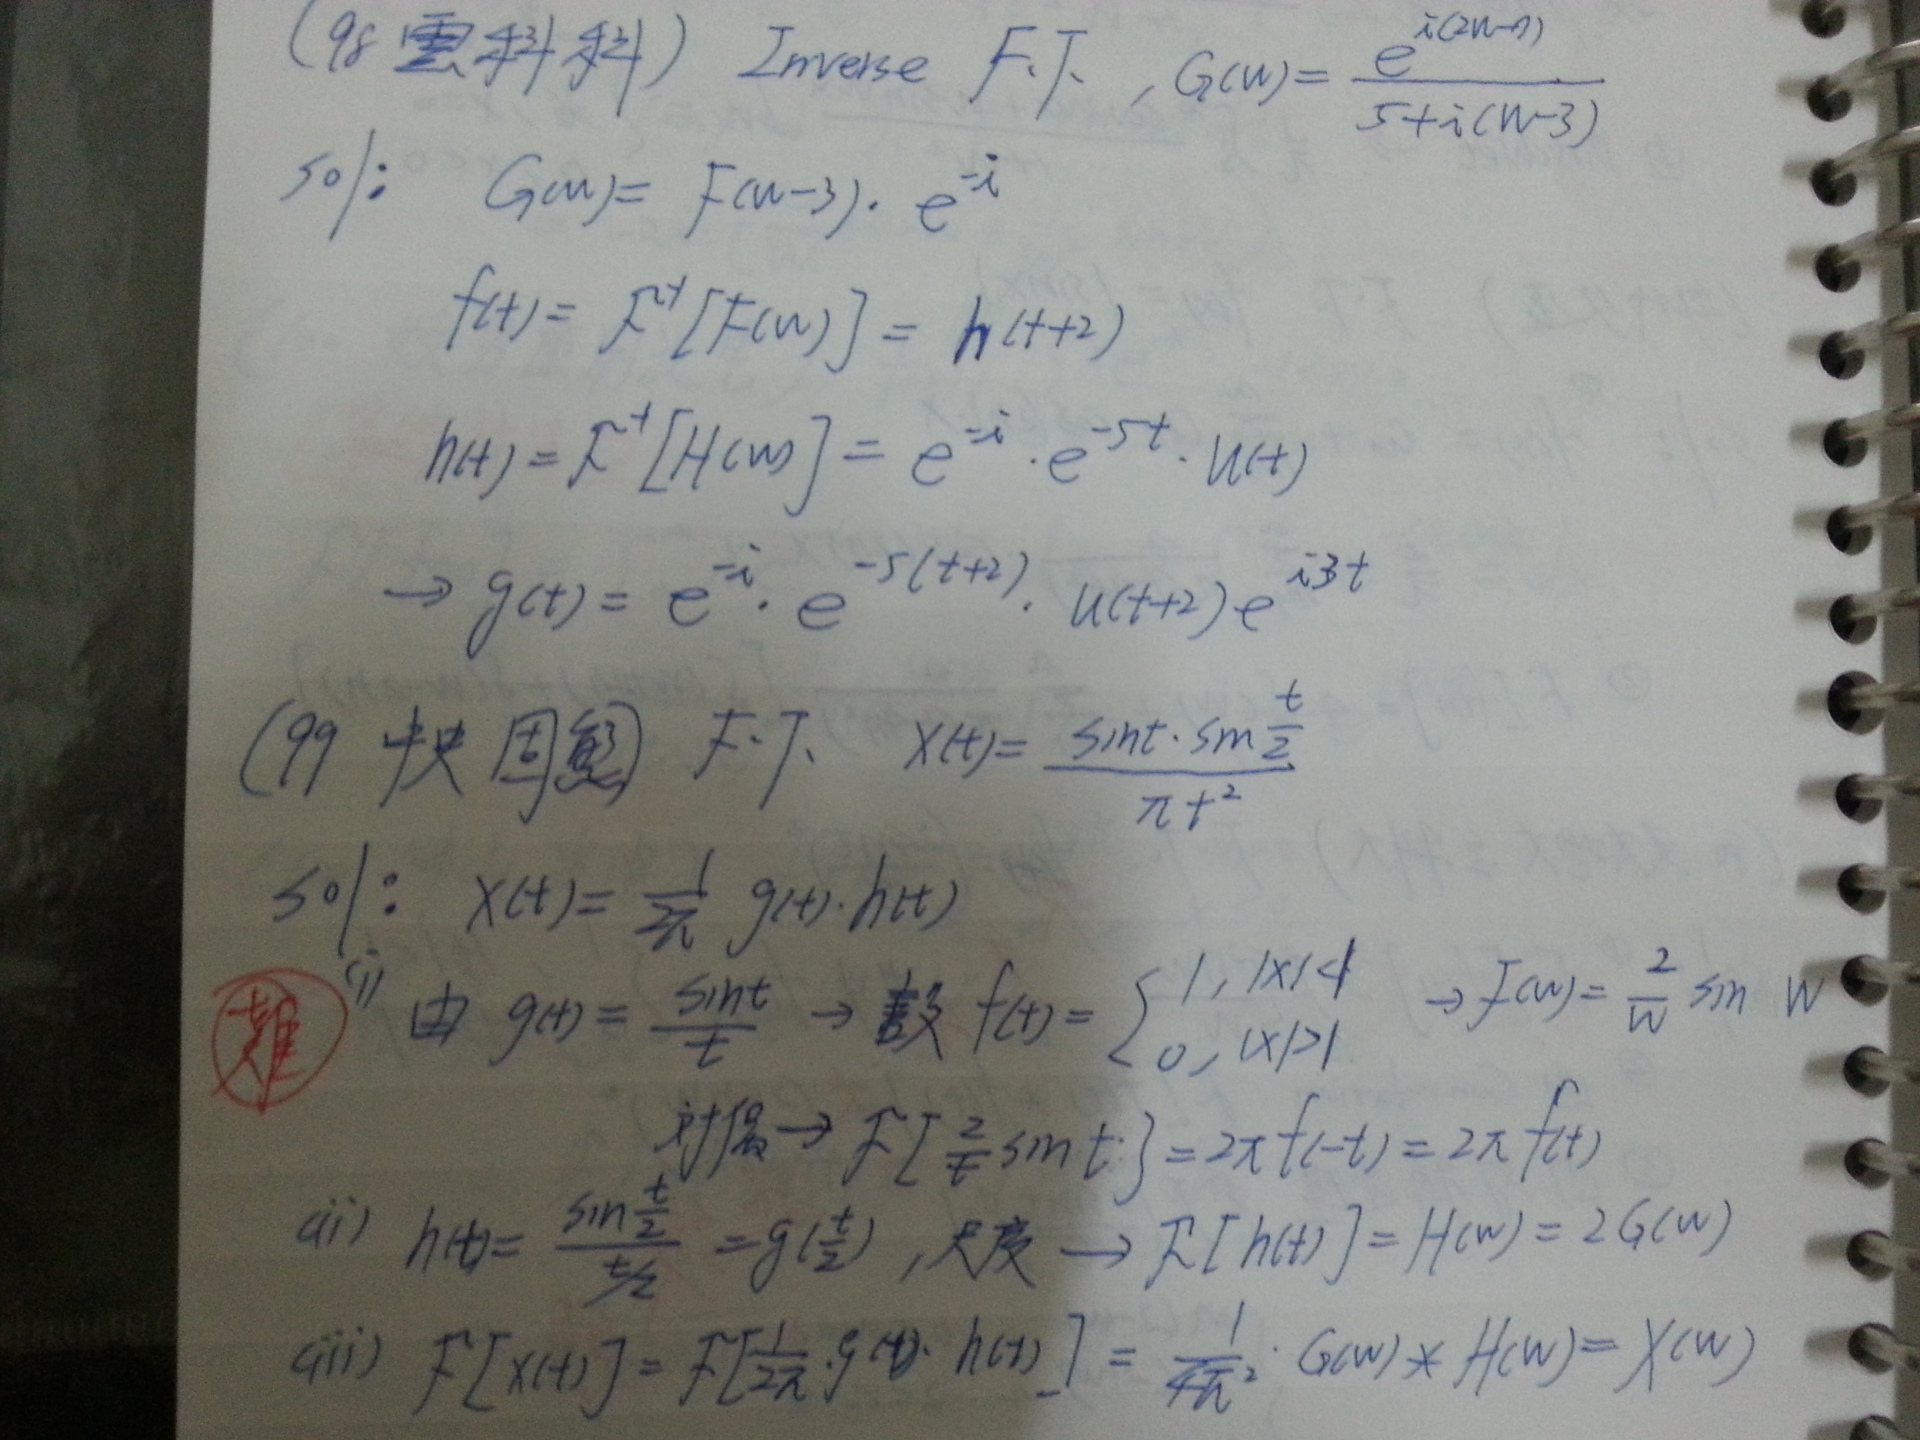 (98 雲科 科) Inverse F.T. , G(w) = e^{i(2w-7)} / (5+i(w-3))
sol: G(w) = F(w-3) · e^{-i}
f(t) = F^{-1}[F(w)] = h(t+2)
h(t) = F^{-1}[H(w)] = e^{-i} · e^{-5t} · u(t)
→ g(t) = e^{-i} · e^{-5(t+2)} · u(t+2) e^{i3t}
(99 中央 ) F.T. x(t) = sint · sin t/2 / πt²
sol: x(t) = 1/2π g(t) · h(t)
難
(i) 由 g(t) = sint/t → 設 f(t) = { 1, |x|<1 0, |x|>1 → F(w) = 2/w sin w
對偶 → F[2/t sin t] = 2π f(-t) = 2π f(t)
(ii) h(t) = sin t/2 / t/2 = g(t/2) , 尺度 → F[h(t)] = H(w) = 2G(w)
(iii) F[x(t)] = F[1/2π · g(t) · h(t)] = 1/4π² · G(w) * H(w) = X(w)